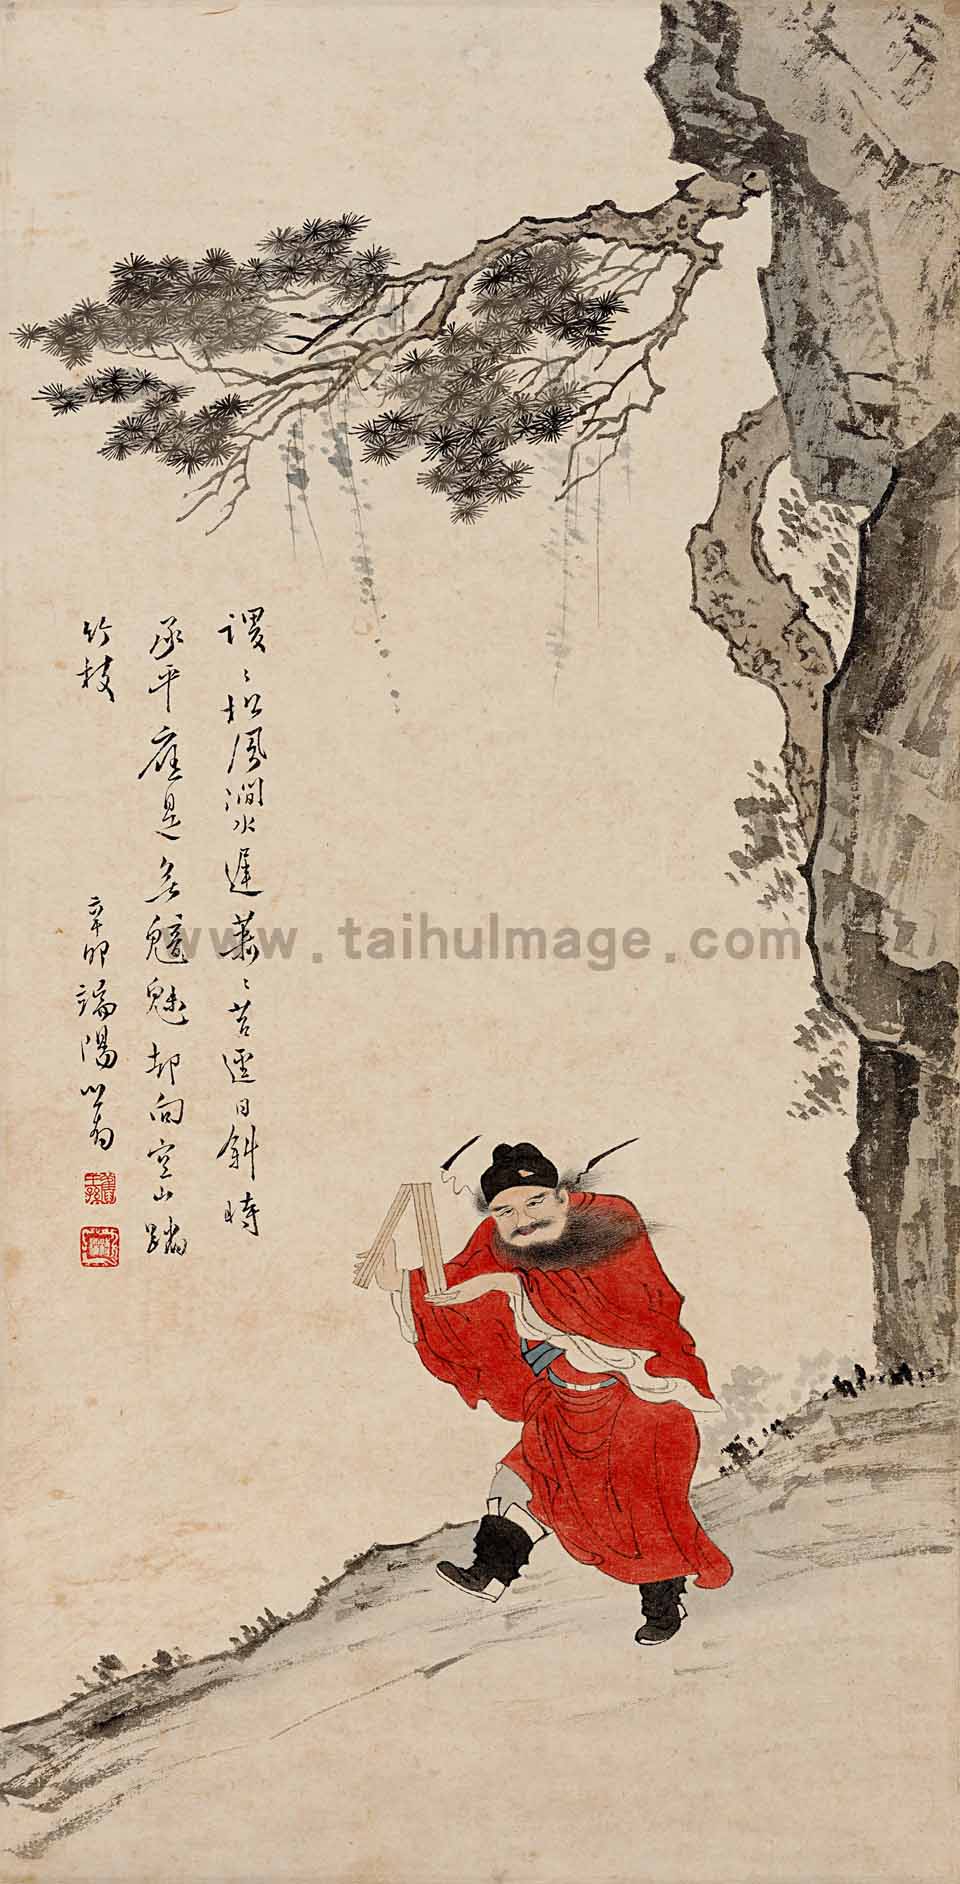 謖〻松風澗水遲蕭〻苔逕日斜時
承平應是無魑魅却向空山蹋
竹枝
辛卯端陽心畬
舊王孫
www.taihuImage.com